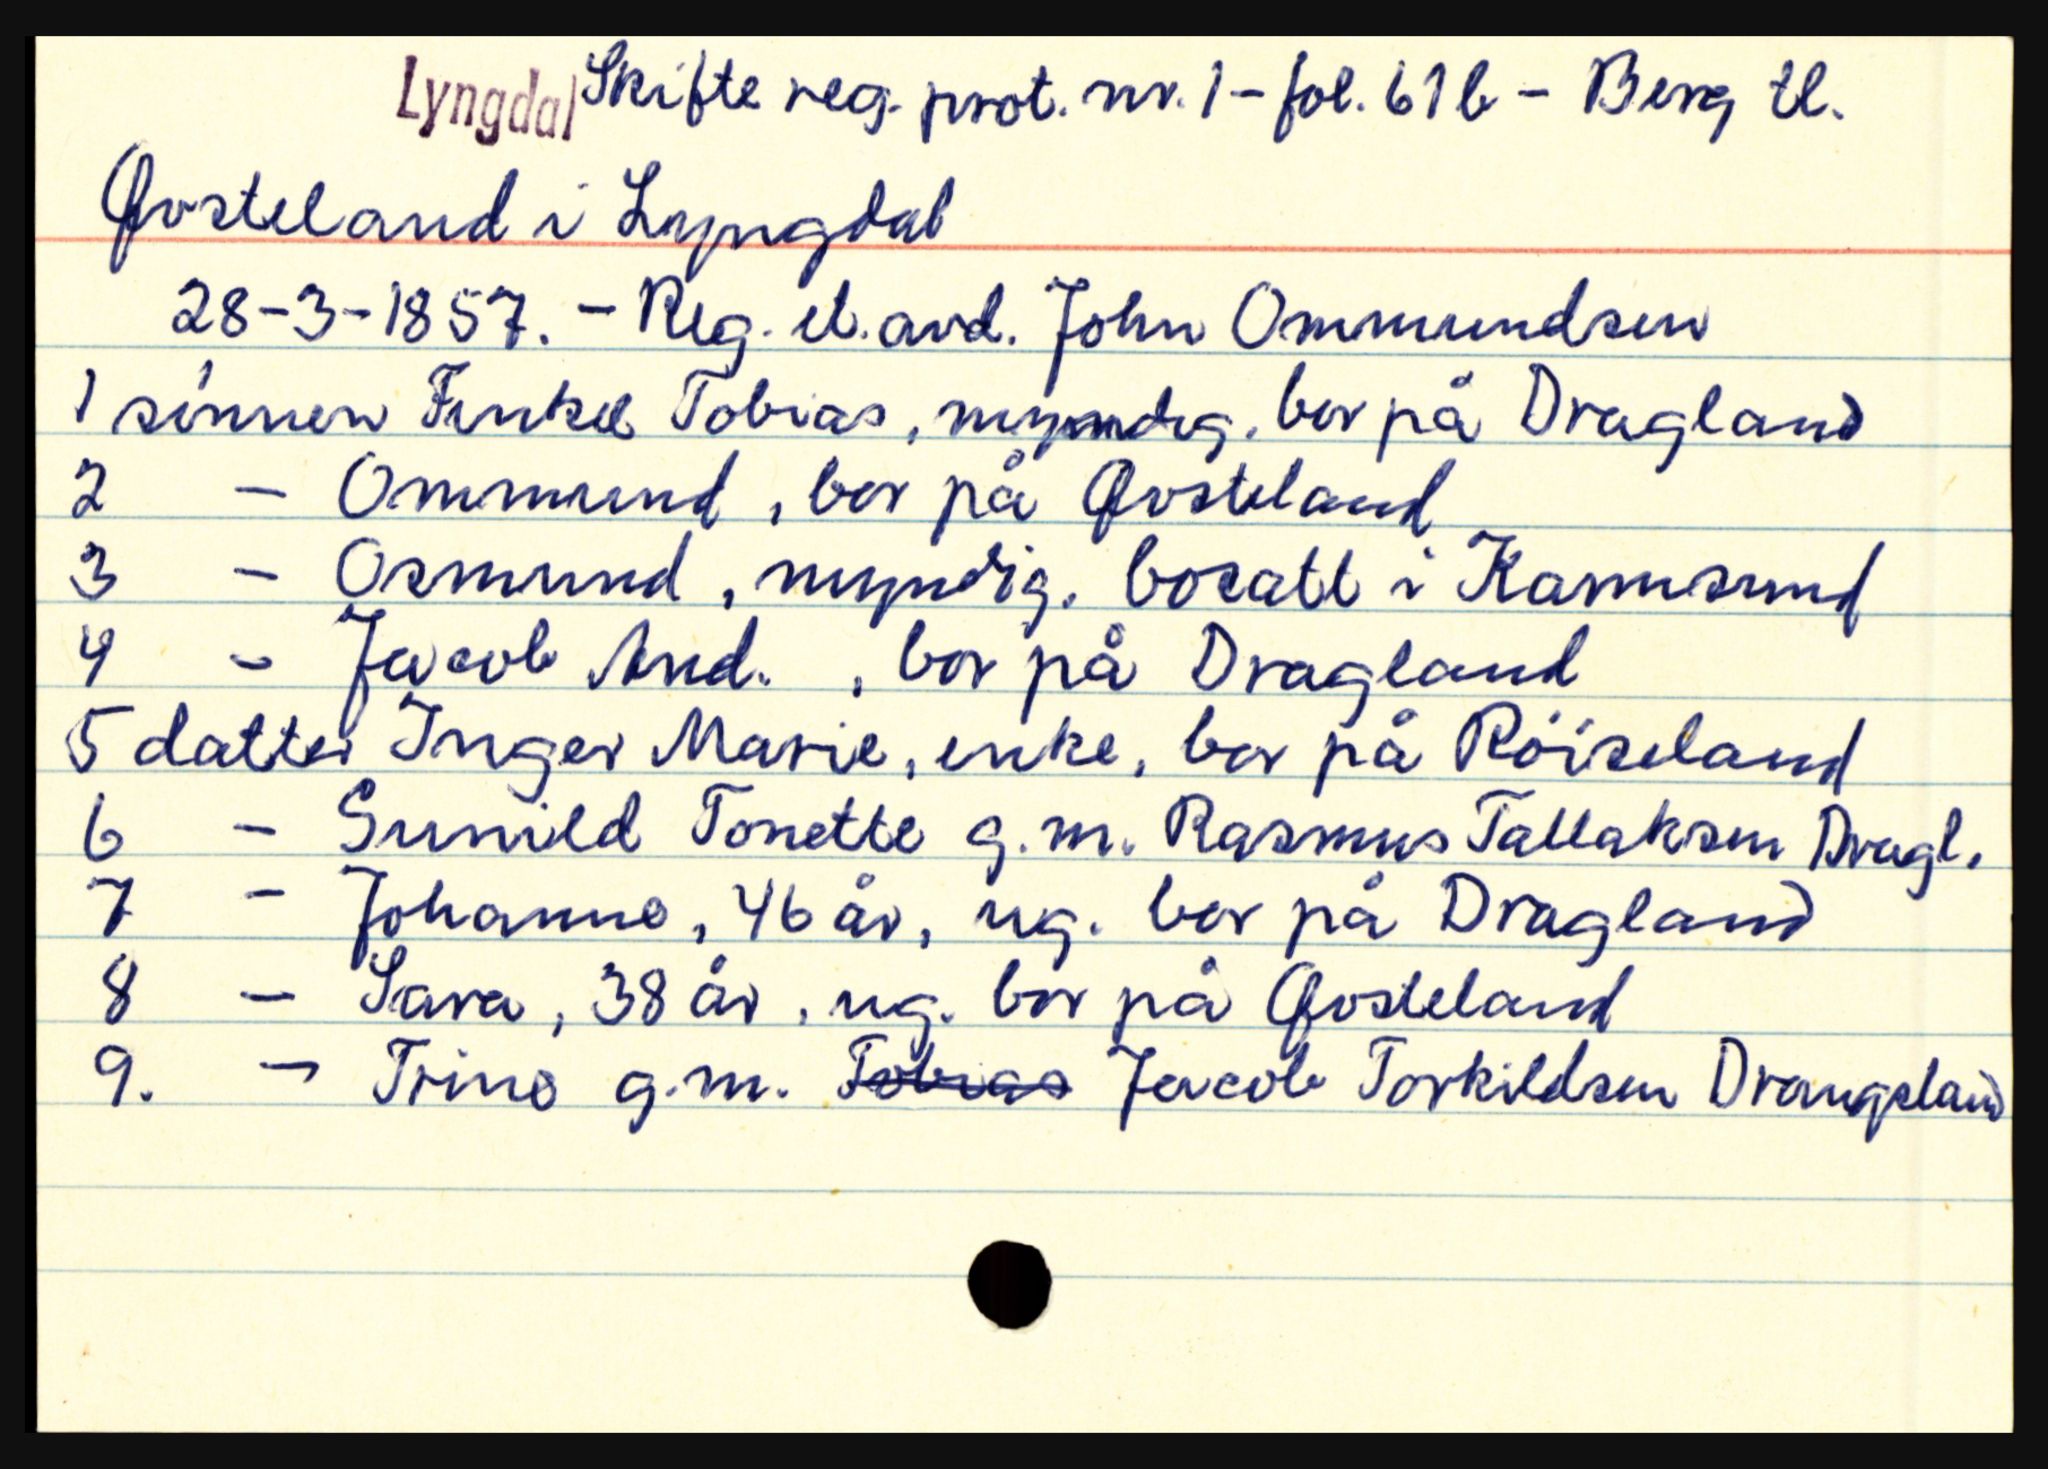 Lyngdal Skifte reg. prot. nr. 1 - fol. 61b - Berg tl.
Qvsteland i Lyngdal
28-3-1857. - Reg. et. avd. John Ommundsen
1 sönnen Tobias, myndig. bor på Dragland
2 - Ommund, bor på Qvsteland
3 - Osmund, myndig. bosatt i Karmsund
4 - Jacob And. , bor på Dragland
5 datter Inger Marie, enke, bor på Röiseland
6 - Gunild Tonette g.m. Rasmus Tallaksen Dragl.
7 - Johanne, 46 år, ug. bor på Dragland
8 - Sara, 38 år, ug. bor på Qvsteland
9. - Trine g.m. Tobias Jacob Torkildsen Drangsland